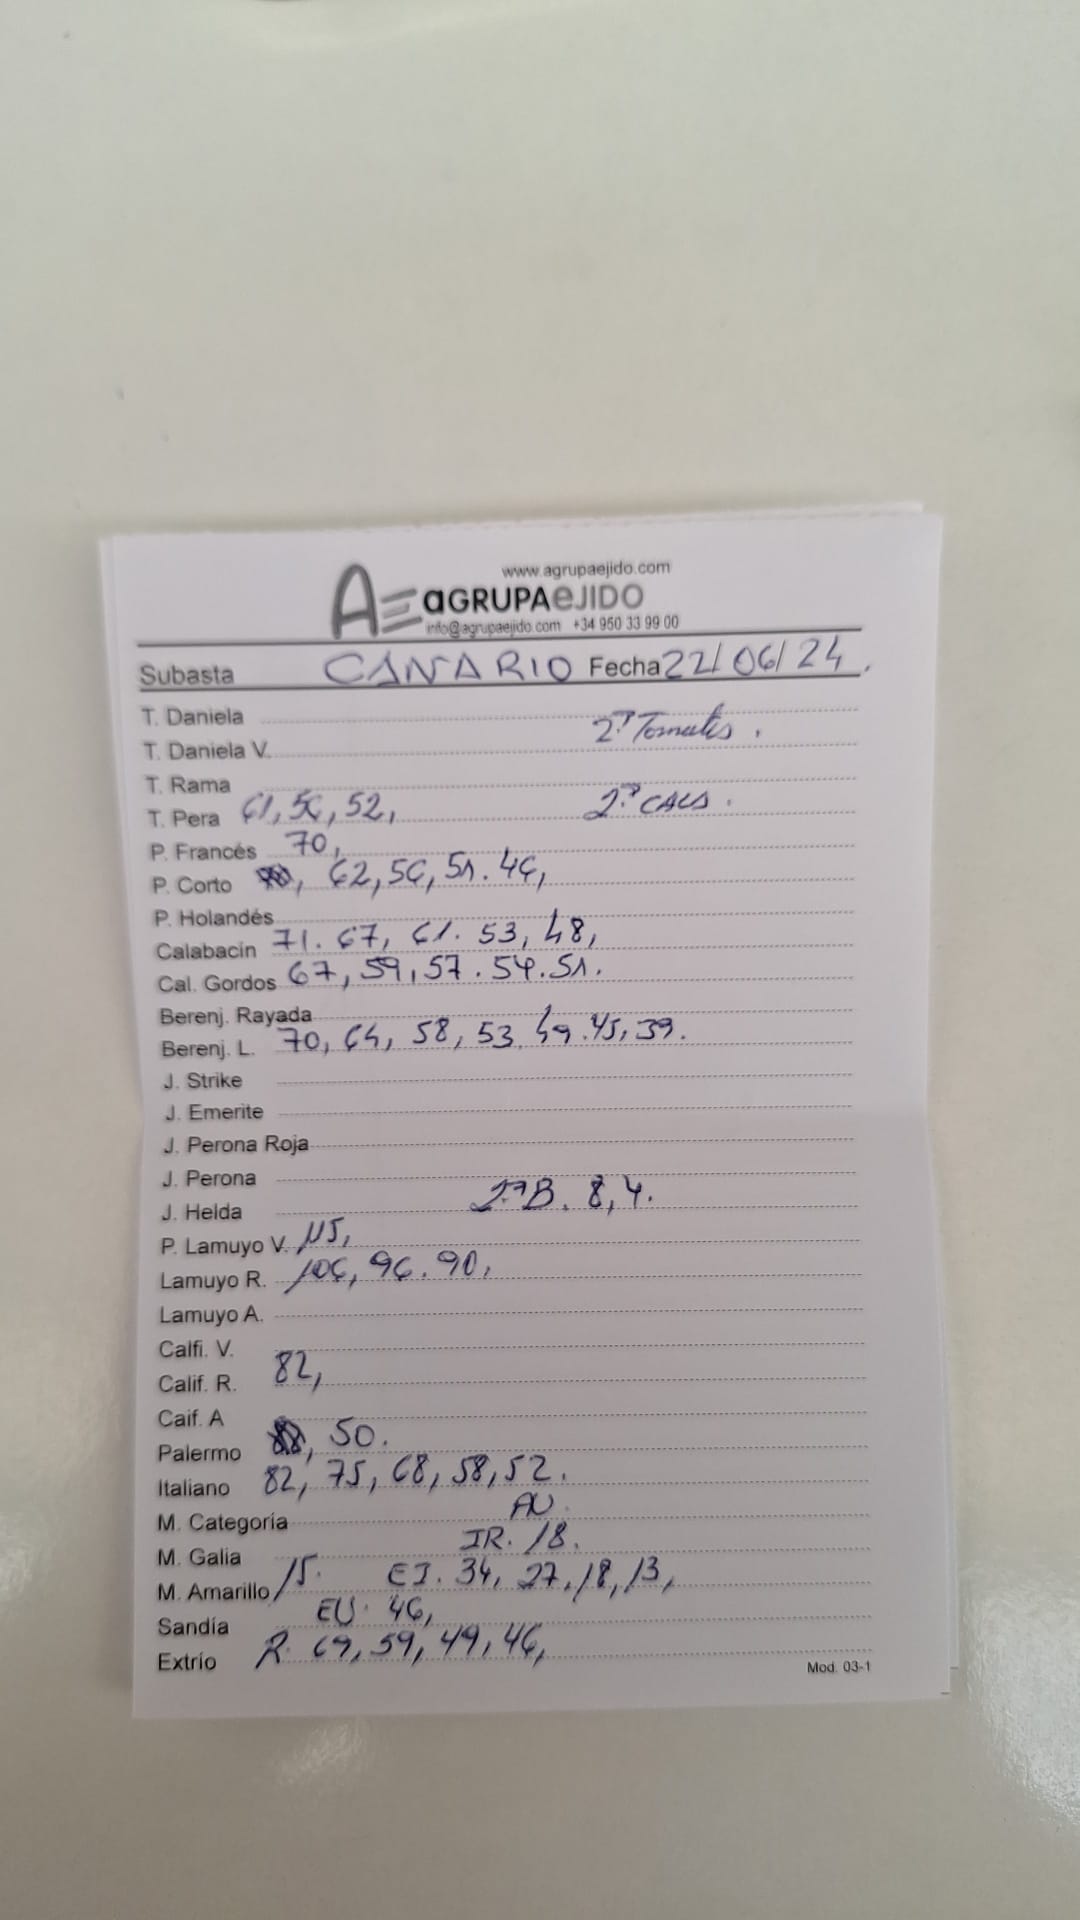 www.agrupaejido.com
AE aGRUPAeJIDO
info@agrupaejido.com +34 950 33 99 00
Subasta CANARIO Fecha 22/06/24.
T. Daniela
2ª Tomates.
T. Daniela V.
T. Rama
T. Pera 61, 56, 52,
2ª CALS.
P. Francés 70,
P. Corto , 62, 56, 51. 46,
P. Holandés
Calabacín 71. 67, 61. 53, 48,
Cal. Gordos 67, 59, 57. 54. 51.
Berenj. Rayada
Berenj. L. 70, 64, 58, 53. 49. 45, 39.
J. Strike
J. Emerite
J. Perona Roja
J. Perona
J. Helda 2ª B. 8, 4.
P. Lamuyo V. 115,
Lamuyo R. 106, 96. 90,
Lamuyo A.
Calfi. V.
Calif. R. 82,
Caif. A
Palermo , 50.
Italiano 82, 75, 68, 58, 52.
M. Categoría
M. Galia IR. 18.
M. Amarillo 15. EJ. 34, 27, 18, 13,
Sandía EU. 46,
Extrío R. 69, 59, 49, 46,
Mod. 03-1